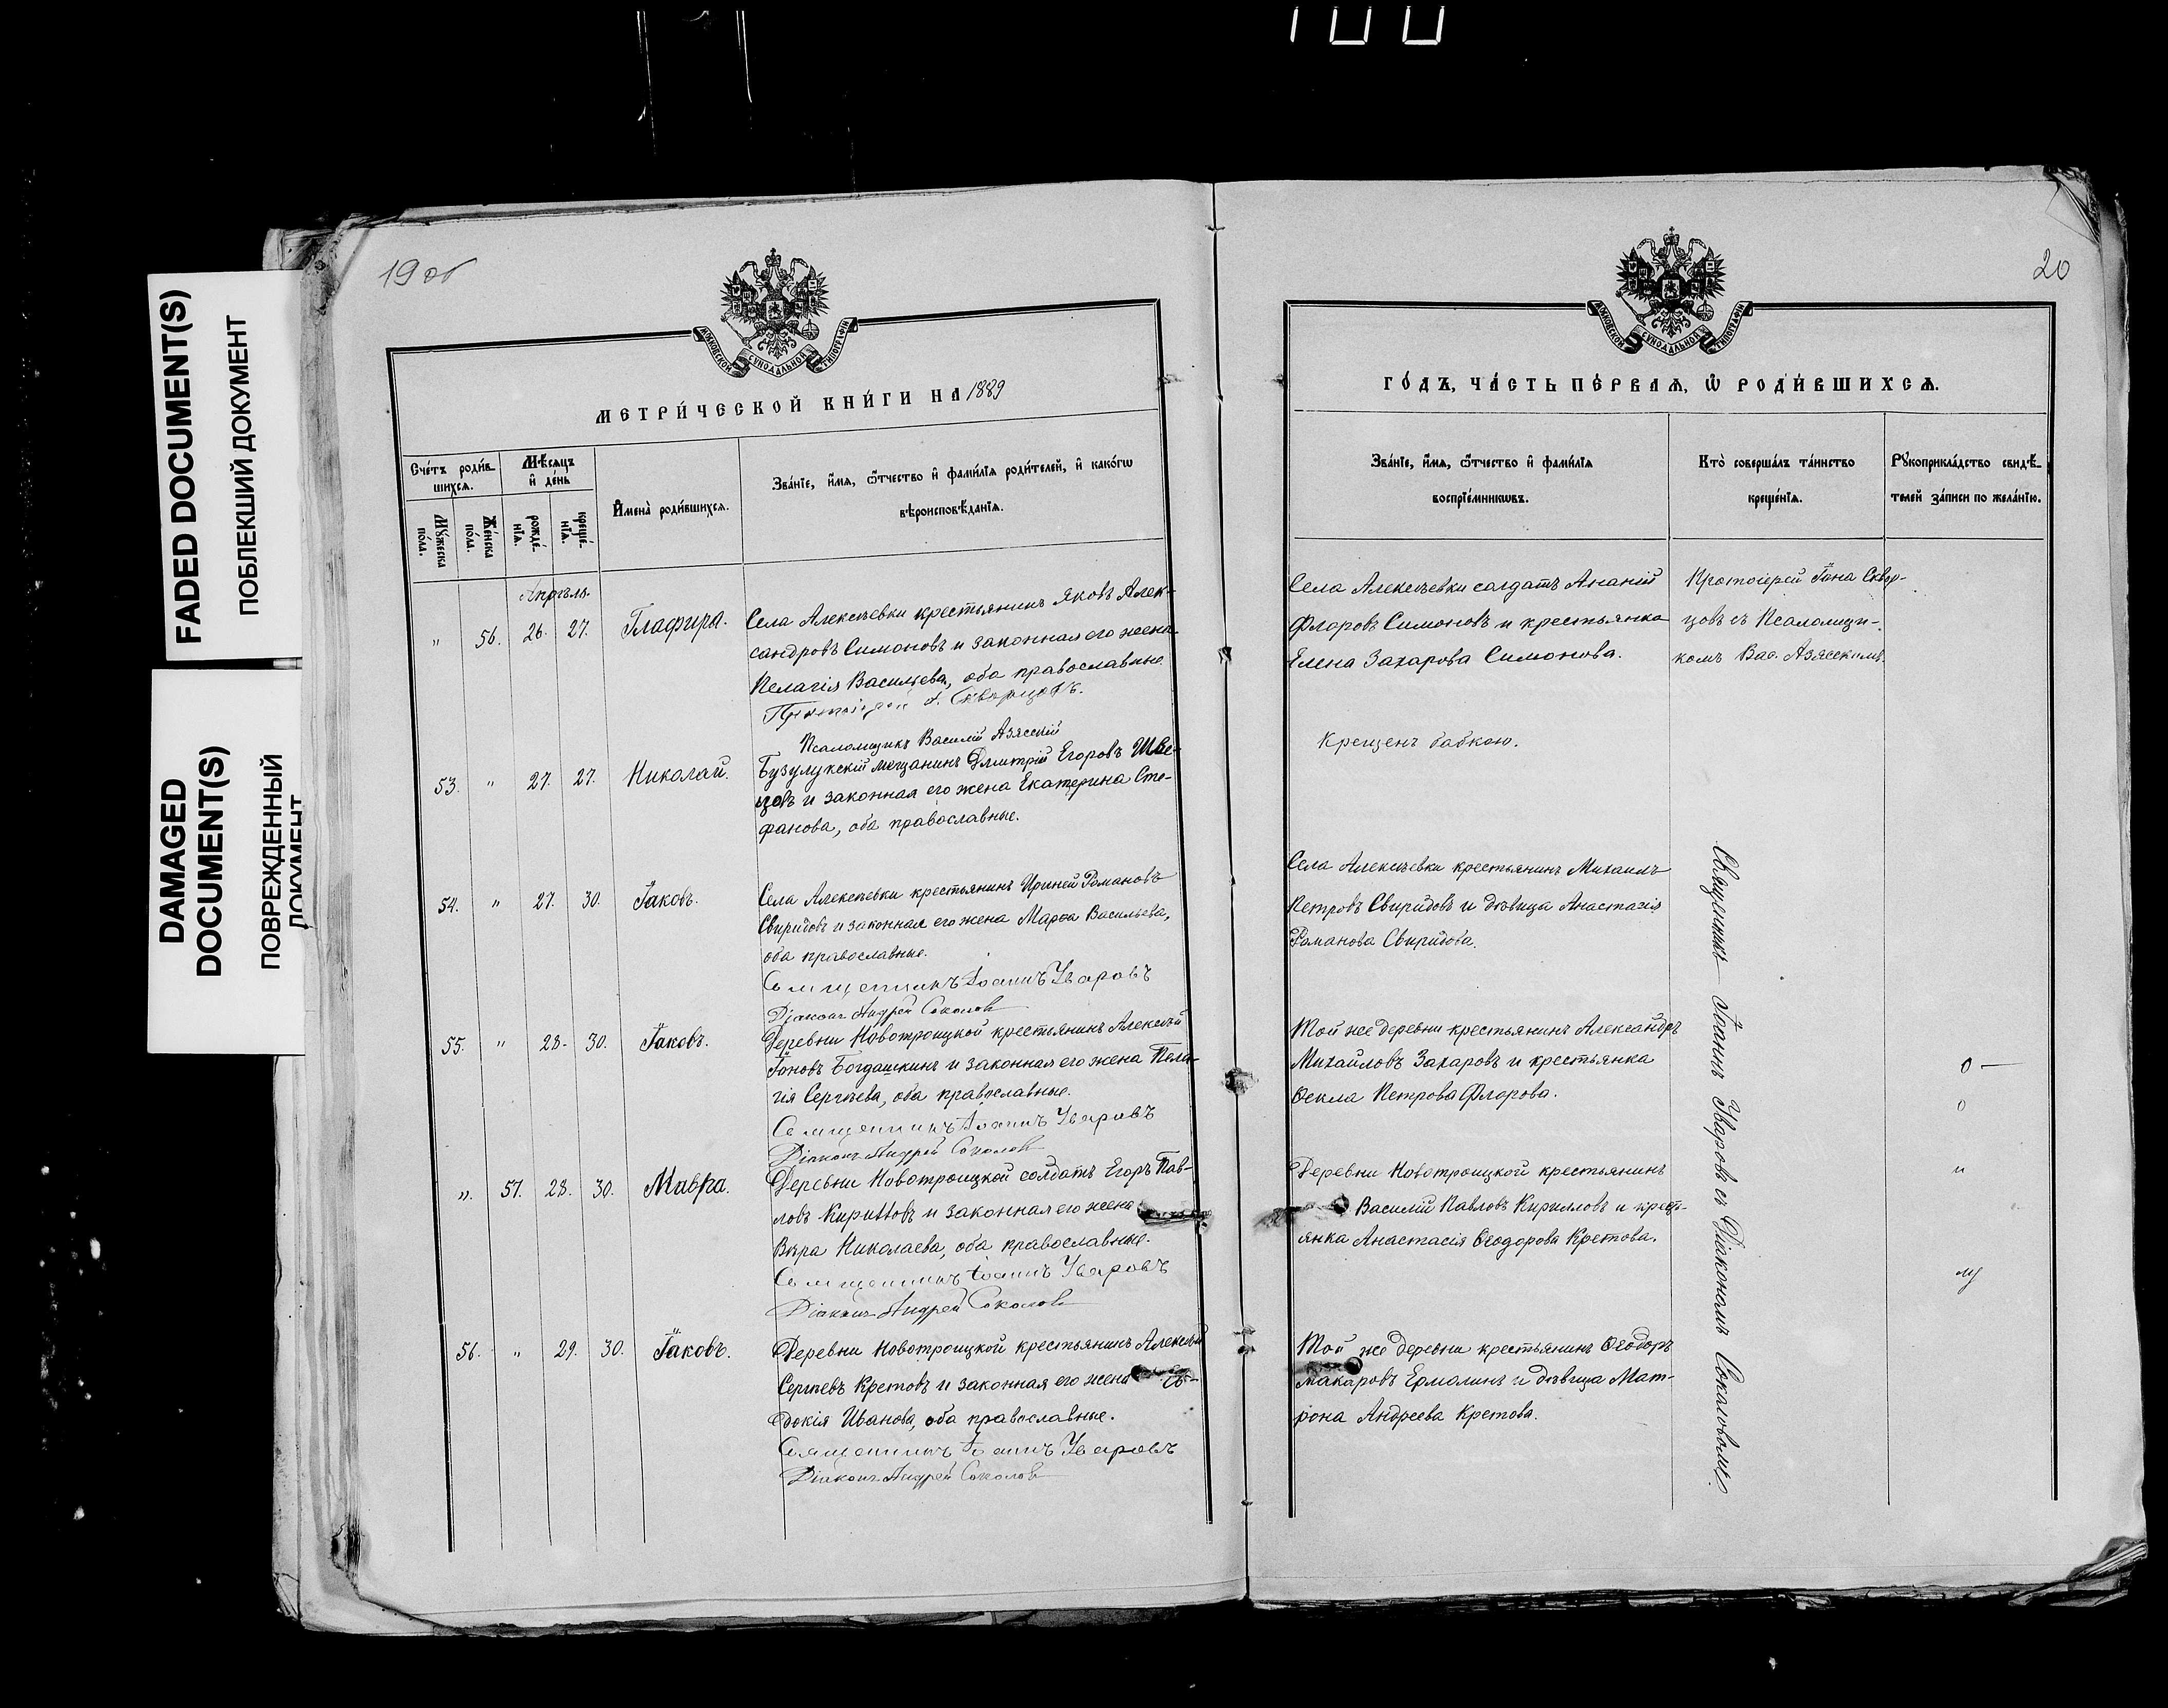 100
FADED DOCUMENT(S)
ПОБЛЕКШИЙ ДОКУМЕНТ
DAMAGED
DOCUMENT(S)
ПОВРЕЖДЕННЫЙ
ДОКУМЕНТ
19 об
МОСКОВСКОЙ СѴНОДАЛЬНОЙ ТИПОГРАФІИ
МЕТРИ́ЧЕСКОЙ КНИ́ГИ НА 1889
Сче́тъ роди́в-
шихсѧ.
Мѣ́сѧцъ
и҆ де́нь
И҆мена̀ роди́вшихсѧ.
Зва́нїе, и҆́мѧ, ѻ҆́тчество и҆ фами́лїѧ роди́телей, и҆ како́гѡ
вѣроисповѣ́данїѧ.
Мꙋ́жеска
по́ла.
Же́нска
по́ла.
рожде́-
нїѧ.
креще́-
нїѧ.
Апрѣль.
" 56. 26. 27. Глафира. Села Алексѣевки крестьянинъ Яковъ Алек-
сандровъ Симоновъ и законная его жена
Пелагія Васильева, оба православные.
Протоіерей І. Скворцовъ.
Псаломщикъ Василій Азясскій
53. " 27. 27. Николай. Бузулукскій мѣщанинъ Димитрій Егоровъ Шве-
цовъ и законная его жена Екатерина Сте-
фанова, оба православные.
54. " 27. 30. Іаковъ. Села Алексѣевки крестьянинъ Ириней Романовъ
Свиридовъ и законная его жена Марѳа Васильева,
оба православные.
Священникъ Іоаннъ Уваровъ
Діаконъ Андрей Соколовъ
55. " 28. 30. Іаковъ. Деревни Новотроицкой крестьянинъ Алексѣй
Іоновъ Богдашкинъ и законная его жена Пела-
гія Сергѣева, оба православные.
Священникъ Іоаннъ Уваровъ
Діаконъ Андрей Соколовъ
". 57. 28. 30. Мавра. Деревни Новотроицкой солдатъ Егоръ Пав-
ловъ Кирилловъ и законная его жена
Вѣра Николаева, оба православные.
Священникъ Іоаннъ Уваровъ
Діаконъ Андрей Соколовъ
56. " 29. 30. Іаковъ. Деревни Новотроицкой крестьянинъ Алексѣй
Сергѣевъ Кретовъ и законная его жена Ев-
докія Иванова, оба православные.
Священникъ Іоаннъ Уваровъ
Діаконъ Андрей Соколовъ
20
МОСКОВСКОЙ СѴНОДАЛЬНОЙ ТИПОГРАФІИ
ГО́ДЪ, ЧА́СТЬ ПЕ́РВАѦ, Ѡ҆ РОДИ́ВШИХСѦ.
Зва́нїе, и҆́мѧ, ѻ҆́тчество и҆ фами́лїѧ
воспрїе́мникѡвъ.
Кто̀ соверша́лъ та́инство
креще́нїѧ.
Рꙋкоприкла́дство свидѣ́-
телей за́писи по жела́нїю.
Села Алексѣевки солдатъ Ананій
Флоровъ Симоновъ и крестьянка
Елена Захарова Симонова.
Протоіерей Іона Сквор-
цовъ съ Псаломщи-
комъ Вас. Азясскимъ.
Крещенъ бабкою.
Села Алексѣевки крестьянинъ Михаилъ
Петровъ Свиридовъ и дѣвица Анастасія
Романова Свиридова.
Той же деревни крестьянинъ Александръ
Михайловъ Захаровъ и крестьянка
Ѳекла Петрова Флорова.
Деревни Новотроицкой крестьянинъ
Василій Павловъ Кирилловъ и крест-
янка Анастасія Ѳеодорова Кретова.
Той же деревни крестьянинъ Ѳеодоръ
Макаровъ Ермолинъ и дѣвица Мат-
рона Андреева Кретова.
Священникъ Іоаннъ Уваровъ съ Діакономъ Соколовымъ.